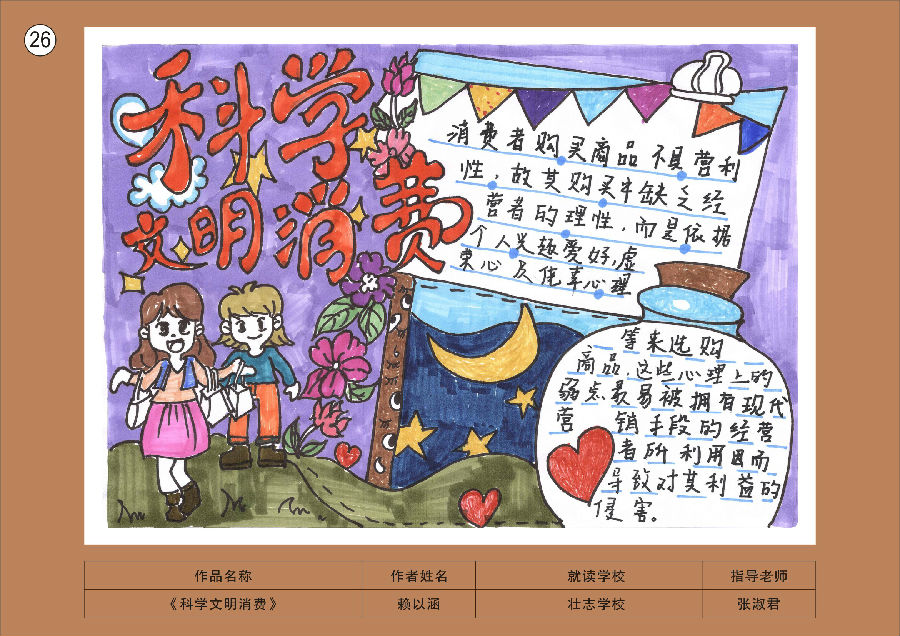 26
科学
文明消费
消费者购买商品不具营利
性,故其购买牛缺乏经
营者的理性,而是依据
个人兴趣爱好,虚
荣心及侥幸心理
等来选购
商品,这些心理上的
弱点最易被拥有现代
营销手段的经营
者所利用因而
导致对其利益的
侵害。
作品名称 作者姓名 就读学校 指导老师
《科学文明消费》 赖以涵 壮志学校 张淑君